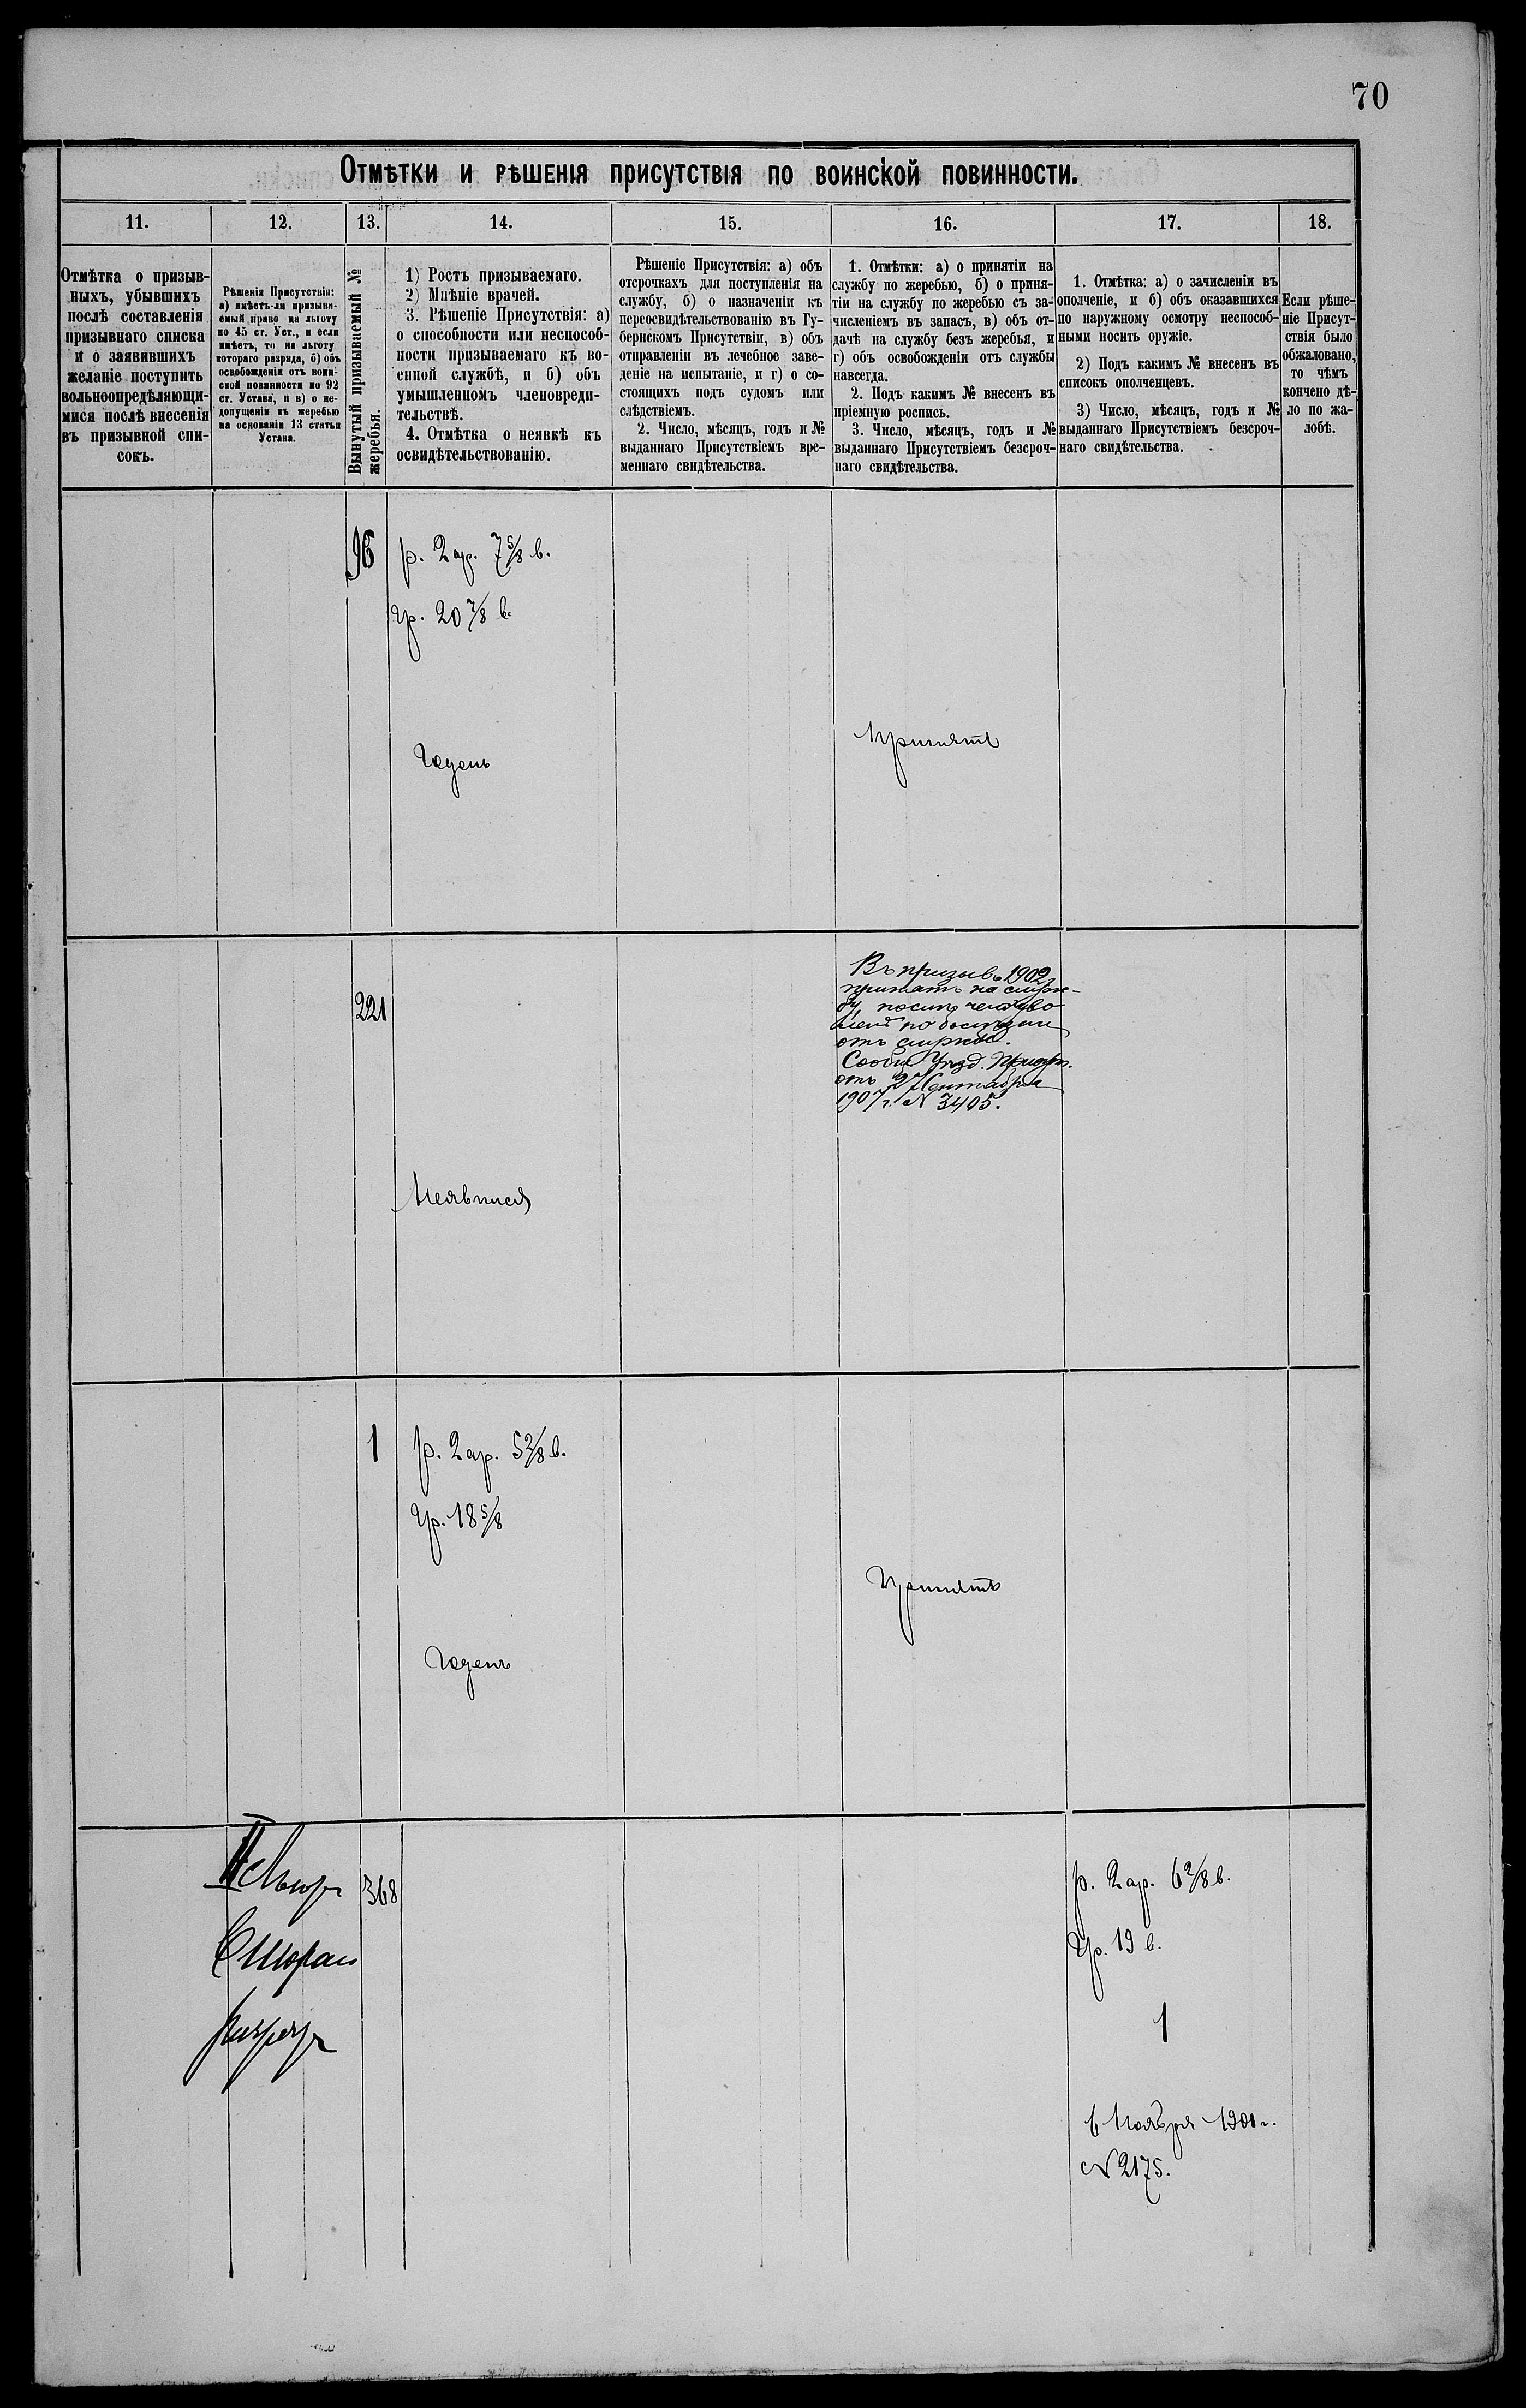 70
Отмѣтки и рѣшенія присутствія по воинской повинности.
11.
12.
13.
14.
15.
16.
17.
18.
Отмѣтка о призыв-
ныхъ, убывшихъ
послѣ составленія
призывнаго списка
и о заявившихъ
желаніе поступить
вольноопредѣляющи-
мися послѣ внесенія
въ призывной спи-
сокъ.
Рѣшенія Присутствія:
а) имѣетъ-ли призыва-
емый право на льготу
по 45 ст. Уст., и если
имѣетъ, то на льготу
котораго разряда, б) объ
освобожденіи отъ воин-
ской повинности по 92
ст. Устава, и в) о не-
допущеніи къ жеребью
на основаніи 13 статьи
Устава.
Вынутый призываемый №
жеребья.
1) Ростъ призываемаго.
2) Мнѣніе врачей.
3. Рѣшеніе Присутствія: а)
о способности или неспособ-
ности призываемаго къ во-
енной службѣ, и б) объ
умышленномъ членовреди-
тельствѣ.
4. Отмѣтка о неявкѣ къ
освидѣтельствованію.
Рѣшеніе Присутствія: а) объ
отсрочкахъ для поступленія на
службу, б) о назначеніи къ
переосвидѣтельствованію въ Гу-
бернскомъ Присутствіи, в) объ
отправленіи въ лечебное заве-
деніе на испытаніе, и г) о со-
стоящихъ подъ судомъ или
слѣдствіемъ.
2. Число, мѣсяцъ, годъ и №
выданнаго Присутствіемъ вре-
меннаго свидѣтельства.
1. Отмѣтки: а) о принятіи на
службу по жеребью, б) о приня-
тіи на службу по жеребью съ за-
численіемъ въ запасъ, в) объ от-
дачѣ на службу безъ жеребья, и
г) объ освобожденіи отъ службы
навсегда.
2. Подъ какимъ № внесенъ въ
пріемную роспись.
3. Число, мѣсяцъ, годъ и №
выданнаго Присутствіемъ безсроч-
наго свидѣтельства.
1. Отмѣтка: а) о зачисленіи въ
ополченіе, и б) объ оказавшихся
по наружному осмотру неспособ-
ными носить оружіе.
2) Подъ какимъ № внесенъ въ
списокъ ополченцевъ.
3) Число, мѣсяцъ, годъ и №
выданнаго Присутствіемъ безсроч-
наго свидѣтельства.
Если рѣше-
ніе Присут-
ствія было
обжаловано,
то чѣмъ
кончено дѣ-
ло по жа-
лобѣ.
96
р. 2 ар. 7 5/8 в.
гр. 20 7/8 в.
Годенъ
Принятъ
221
Неявился
Въ призывъ 1902 г.
принятъ на служ-
бу,
отъ службы.
Сообщ. Уѣзд. Присут.
отъ 27 Сентября
1907 г. № 3405.
1
р. 2 ар. 5 2/8 в.
гр. 18 5/8
Годенъ
Принятъ
II
разряд
368
р. 2 ар. 6 2/8 в.
гр. 19 в.
1
6 Ноября 1901 г.
№ 2175.